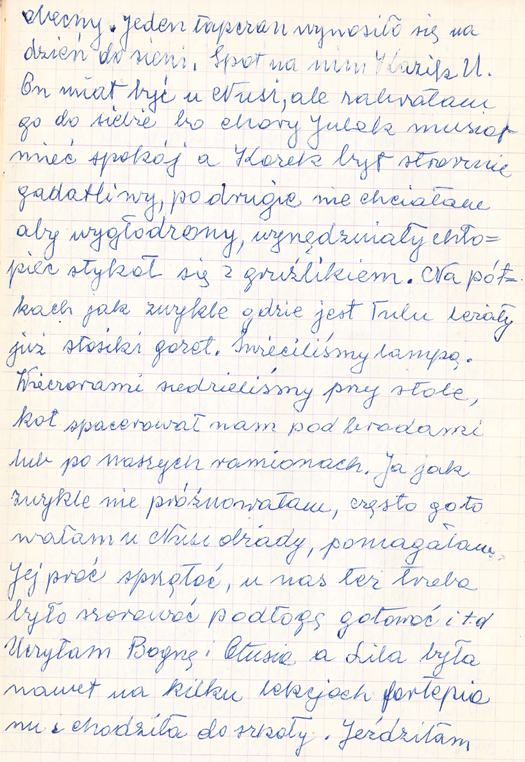 obecny. Jeden tapczan wynosiło się na
dzień do sieni. Spał na nim Kazik U.
On miał być u Nusi, ale zabrałam
go do siebie bo chory Julek musiał
mieć spokój a Kazek był strasznie
gadatliwy, po drugie nie chciałam
aby wygłodzony, wynędzniały chło=
piec stykał się z gruźlikiem. Na pół=
kach jak zwykle gdzie jest Tulu leżały
już stosiki gazet. Świeciliśmy lampą.
Wieczorami siedzieliśmy przy stole,
kot spacerował nam pod brodami
lub po naszych ramionach. Ja jak
zwykle nie próżnowałam, często goto
wałam u Nusi obiady, pomagałam
jej prać sprzątać, u nas też trzeba
było szorować podłogę gotować i t.d
Uczyłam Bognę i a Lila była
nawet na kilku lekcjach fortepia
nu i chodziła do szkoły. Jeździłam